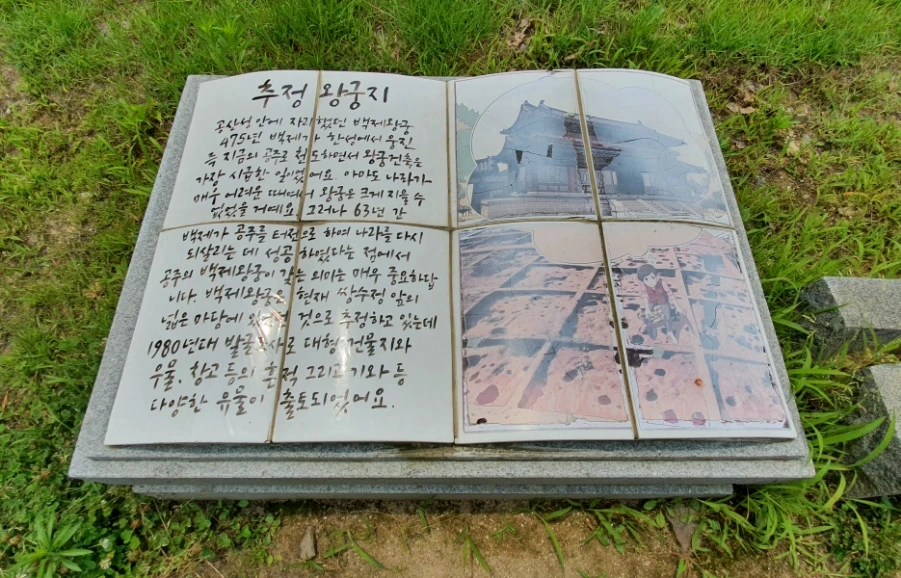 추정 왕궁지
공산성 안에 자리했던 백제왕궁
475년 백제가 한성에서 웅진
즉 지금의 공주로 천도하면서 왕궁건축은
가장 시급한 일이었어요. 아마도 나라가
매우 어려운 때여서 왕궁은 크게 지을 수
없었을 거예요. 그러나 63년 간
백제가 공주를 터전으로 하여 나라를 다시
되살리는 데 성공하였다는 점에서
공주의 백제왕궁이 갖는 의미는 매우 중요하답
니다. 백제왕궁은 현재 쌍수정 앞의
넓은 마당에 것으로 추정하고 있는데
1980년대 발굴조사로 대형 건물지와
우물, 창고 등의 흔적 그리고 기와 등
다양한 유물이 출토되었어요.